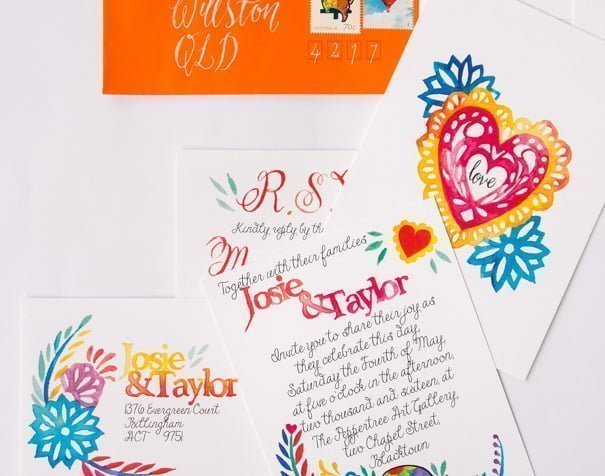 Willston
QLD
AUSTRALIA 70c
4217
love
R.S
Kindly reply by th
M
Together with their families
Josie
&Taylor
Invite you to share their joy as
they celebrate this day,
Saturday the Fourth of May,
at five o'clock in the afternoon,
two thousand and sixteen at
The Peppertree Art Gallery,
two Chapel Street,
Blacktown
Josie
&Taylor
1376 Evergreen Court
Bittingham
ACT 9751